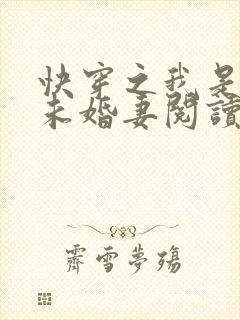 快穿之我是
未婚妻閱讀
霽雪夢殤